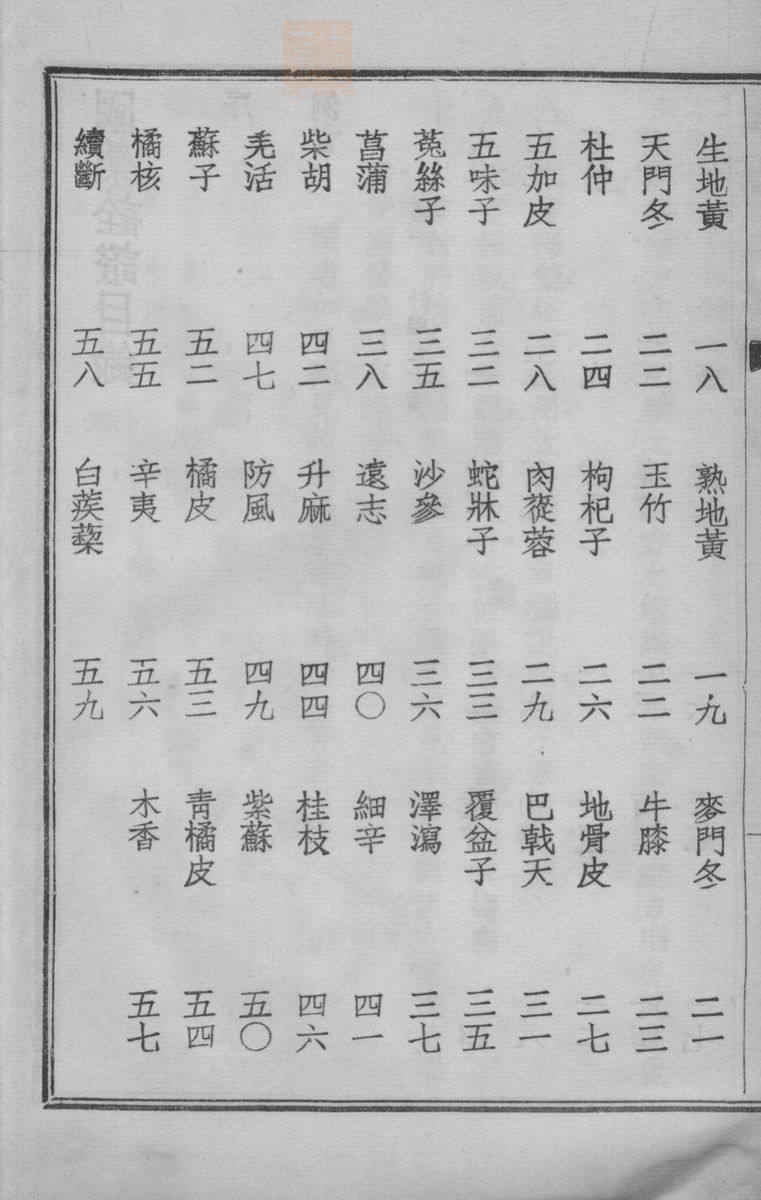 生地黃　一八　熟地黃　一九　麥門冬　二一
天門冬　二二　玉竹　二二　牛膝　二三
杜仲　二四　枸杞子　二六　地骨皮　二七
五加皮　二八　肉蓯蓉　二九　巴戟天　三一
五味子　三二　蛇牀子　三三　覆盆子　三五
菟絲子　三五　沙參　三六　澤瀉　三七
菖蒲　三八　遠志　四〇　細辛　四一
柴胡　四二　升麻　四四　桂枝　四六
羌活　四七　防風　四九　紫蘇　五〇
蘇子　五二　橘皮　五三　靑橘皮　五四
橘核　五五　辛夷　五六　木香　五七
續斷　五八　白蒺蔾　五九